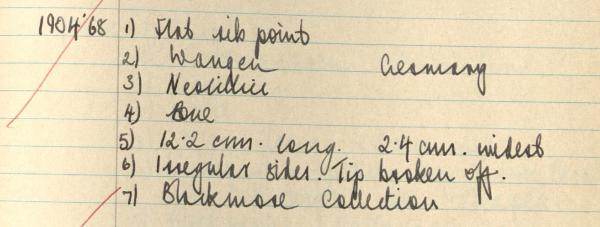 1904.68 1) Flat rib point
2) Wangen Germany
3) Neolithic
4) Bone
5) 12.2 cms. long. 2.4 cms. widest
6) Irregular sides. Tip broken off.
7) Blackmore Collection